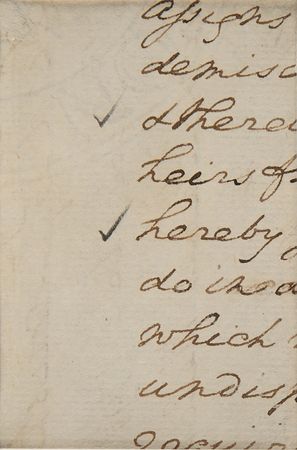 assigns
demise
& there
heirs f
hereby
do in a
which
undisp